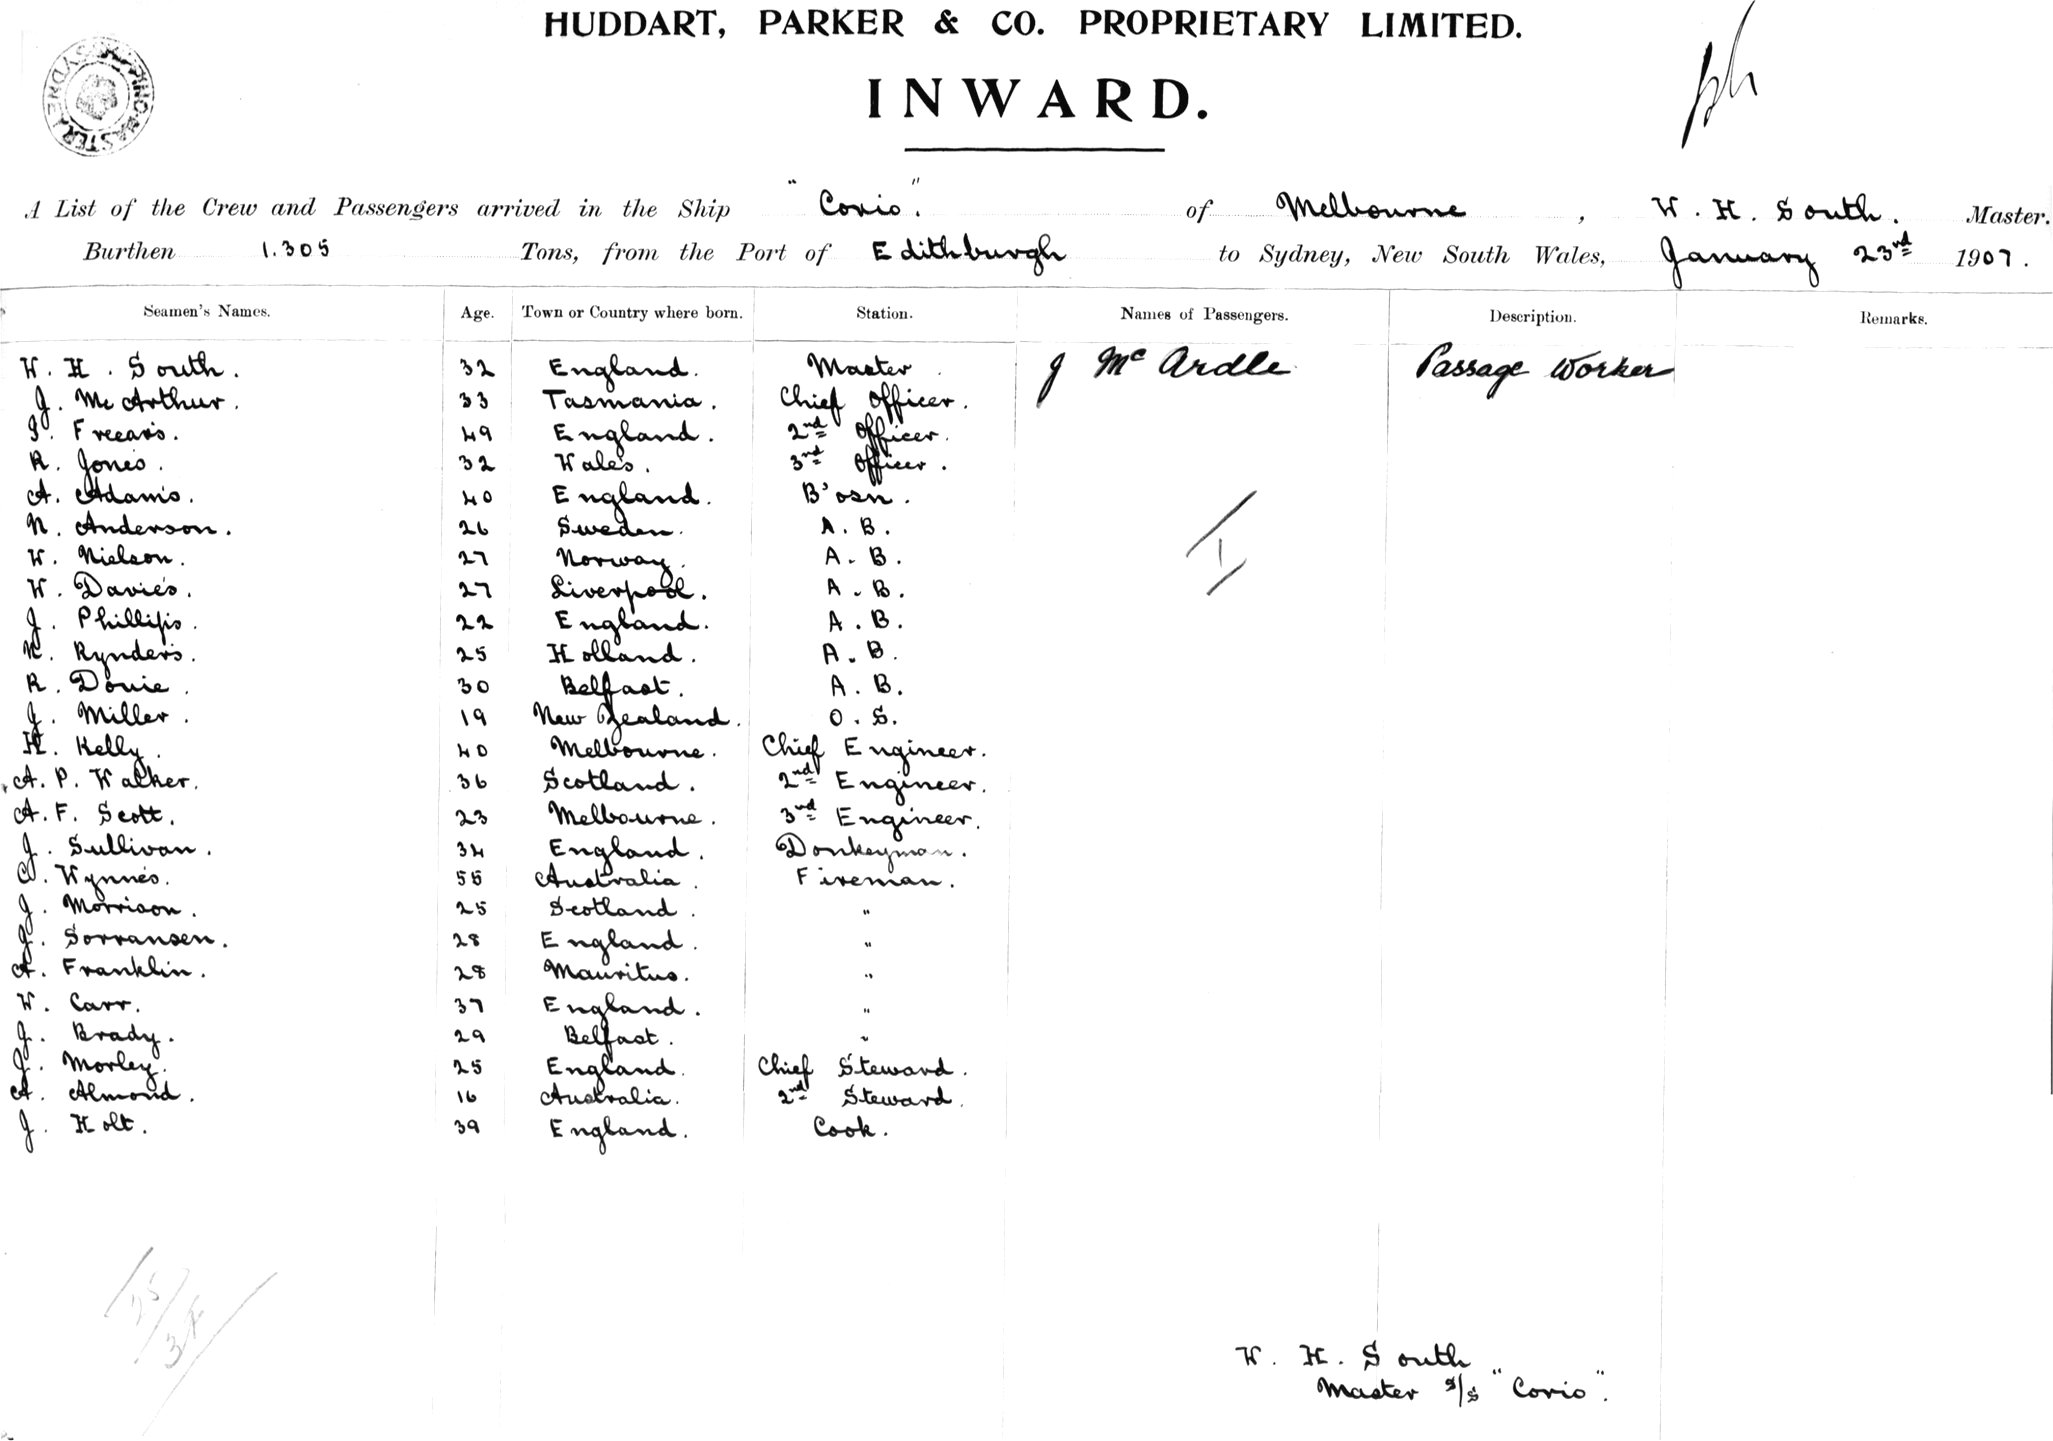 HUDDART, PARKER & CO. PROPRIETARY LIMITED.
INWARD.
A List of the Crew and Passengers arrived in the Ship "Corio". of Melbourne, W. H. South. Master.
Burthen 1.305 Tons, from the Port of Edithburgh to Sydney, New South Wales, January 23rd 1907.
Seamen's Names. Age. Town or Country where born. Station. Names of Passengers. Description. Remarks.
W. H. South. 32 England. Master. J McArdle Passage Worker
J. McArthur. 33 Tasmania. Chief Officer.
Frears. 49 England. 2nd Officer.
R. Jones. 32 Wales. 3rd Officer.
A. Adams. 40 England. B'osn.
N. Anderson. 26 Sweden. A. B.
W. Nielson. 27 Norway. A. B.
W. Davies. 27 Liverpool. A. B.
J. Phillips. 22 England. A. B.
Rynders. 25 Holland. A. B.
R. Donie. 30 Belfast. A. B.
J. Miller. 19 New Zealand. O. S.
H. Kelly. 40 Melbourne. Chief Engineer.
A. P. Walker. 36 Scotland. 2nd Engineer.
A. F. Scott. 23 Melbourne. 3rd Engineer.
J. Sullivan. 34 England. Donkeyman.
Wynnes. 55 Australia. Fireman.
J. Morrison. 25 Scotland. "
J. Sorransen. 28 England. "
A. Franklin. 28 Mauritus. "
W. Carr. 37 England. "
J. Brady. 29 Belfast. "
J. Morley. 25 England. Chief Steward.
A. Almond. 16 Australia. 2nd Steward.
J. Holt. 39 England. Cook.
W. H. South
Master s/s "Corio".